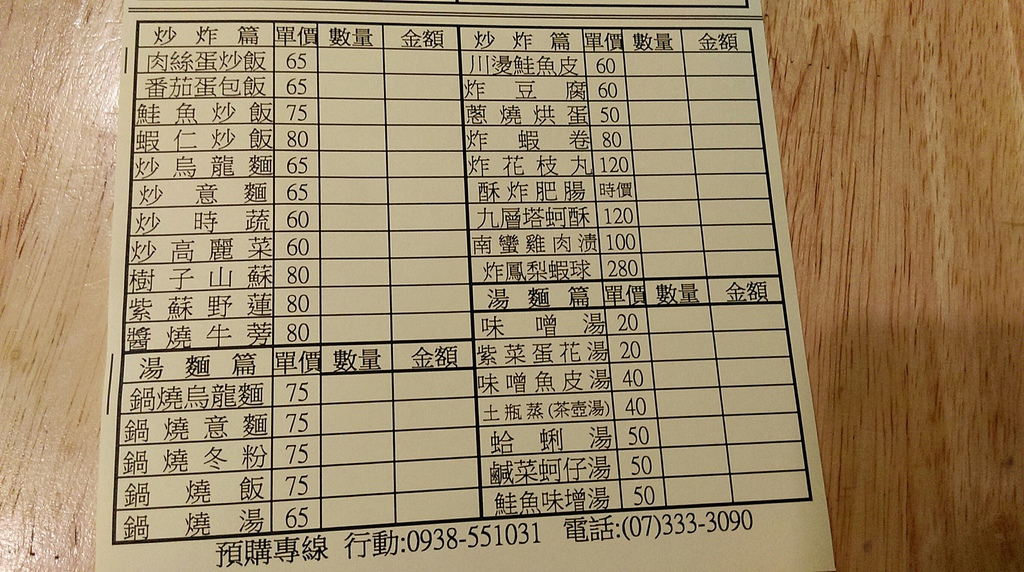 炒炸篇 單價 數量 金額
肉絲蛋炒飯 65
番茄蛋包飯 65
鮭魚炒飯 75
蝦仁炒飯 80
炒烏龍麵 65
炒意麵 65
炒時蔬 60
炒高麗菜 60
樹子山蘇 80
紫蘇野蓮 80
醬燒牛蒡 80
湯麵篇 單價 數量 金額
鍋燒烏龍麵 75
鍋燒意麵 75
鍋燒冬粉 75
鍋燒飯 75
鍋燒湯 65
炒炸篇 單價 數量 金額
川燙鮭魚皮 60
炸豆腐 60
蔥燒烘蛋 50
炸蝦卷 80
炸花枝丸 120
酥炸肥腸 時價
九層塔蚵酥 120
南蠻雞肉漬 100
炸鳳梨蝦球 280
湯麵篇 單價 數量 金額
味噌湯 20
紫菜蛋花湯 20
味噌魚皮湯 40
土瓶蒸(茶壺湯) 40
蛤蜊湯 50
鹹菜蚵仔湯 50
鮭魚味增湯 50
預購專線 行動:0938-551031 電話:(07)333-3090